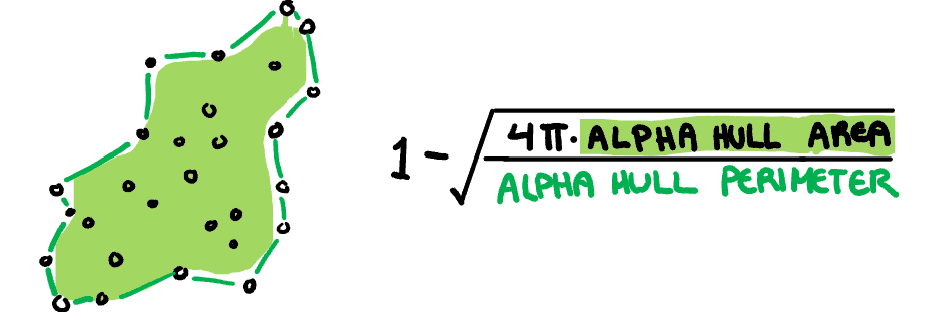 1 - √
4π· ALPHA HULL AREA
ALPHA HULL PERIMETER